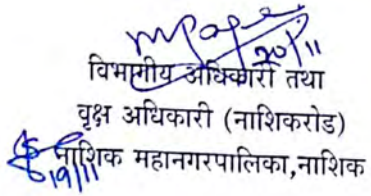 20/11
विभागीय अधिकारी तथा
वृक्ष अधिकारी (नाशिकरोड)
नाशिक महानगरपालिका,नाशिक
19/11